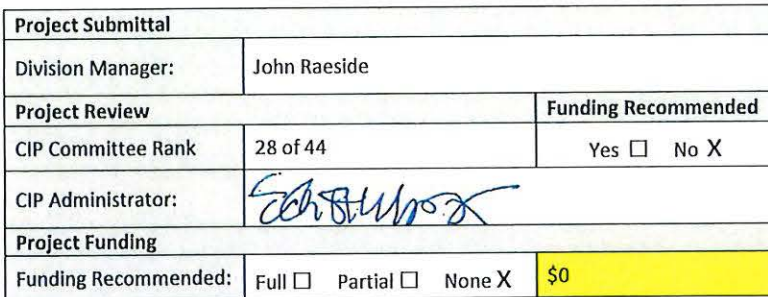 Project Submittal
Division Manager: John Raeside
Project Review Funding Recommended
CIP Committee Rank 28 of 44 Yes ☐ No X
CIP Administrator:
Project Funding
Funding Recommended: Full ☐ Partial ☐ None X $0